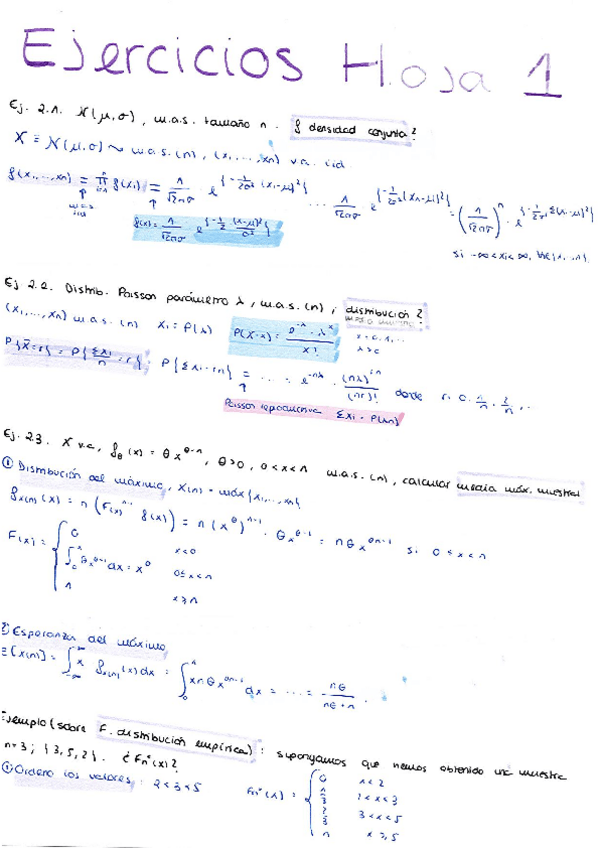 Ejercicios Hoja 1
Ej. 2.1. N(μ,σ), m.a.s. tamaño n. f densidad conjunta?
X ≡ N(μ,σ) ~ m.a.s.(n), (x₁,...,xn) v.a. iid
f(x₁,...,xn) = ∏ f(xi) = 1/√2πσ · e^{-1/2σ² (x₁-μ)²} ... 1/√2πσ e^{-1/2σ² (xn-μ)²} = (1/√2πσ)^n · e^{-1/2σ² Σ(xi-μ)²}
m.a.s iid
f(x) = 1/√2πσ e^{-1/2 (x-μ)²/σ²}
si -∞<xi<∞, ∀i∈{1,...,n}.
Ej 2.2. Distrib. Poisson parámetro λ, m.a.s.(n), distribución media muestral?
(x₁,...,xn) m.a.s.(n) Xi = P(λ) P(X=x) = e^-λ · λ^x / x! x=0,1,... λ>0
P{X̄=r} = P{Σxi/n = r} = P{Σxi = rn} = ... = e^-nλ · (nλ)^rn / (nr)! donde r = 0, 1/n, 2/n, ...
Poisson reproductiva Σxi = P(λn)
Ej. 2.3. X v.c, fθ(x) = θx^θ-1, θ>0, 0<x<1 m.a.s.(n), calcular media máx. muestral
① Distribución del máximo, X(n) = máx{x₁,...,xn}
fx(n)(x) = n(F(x)^n-1 f(x)) = n(x^θ)^n-1 · θx^θ-1 = nθx^θn-1 si 0≤x<1
F(x) = { 0 x<0
∫₀^x θx^θ-1 dx = x^θ 0≤x<1
1 x≥1
② Esperanza del máximo
E[X(n)] = ∫_-∞^∞ x fx(n)(x) dx = ∫₀^1 xnθx^θn-1 dx = ... = nθ/nθ+1.
Ejemplo (sobre F. distribución empírica): supongamos que hemos obtenido una muestra
n=3; {3,5,2}. ¿Fn*(x)?
① Ordeno los valores: 2<3<5 Fn*(x) = { 0 x<2
1/3 2<x<3
2/3 3<x<5
1 x≥5